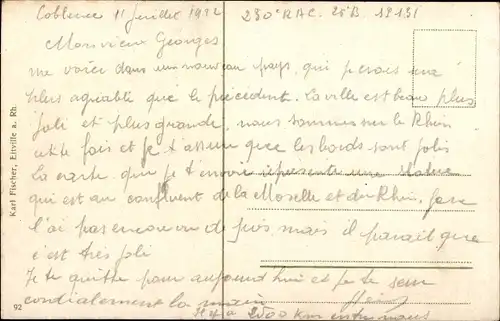 Coblence 11 juillet 192
280e RAC. 25 B SP 131
Mon vieux Georges
me voici dans un nouveau pays qui parais
plus agréable que le précédent. La ville est beau plus
joli et plus grande, nous sommes sur le Rhin
cette fois et je t'assure que les bords sont jolis
la carte que je t'envoie représente une statue
qui est au confluent de la Moselle et du Rhin,
l'ai pas encore vu de près mais il parait que
c'est très joli
Je te quitte pour aujourd'hui et je te serre
cordialement la main
Il y a 2500 Km entre nous
Karl Fischer, Eltville a. Rh.
92